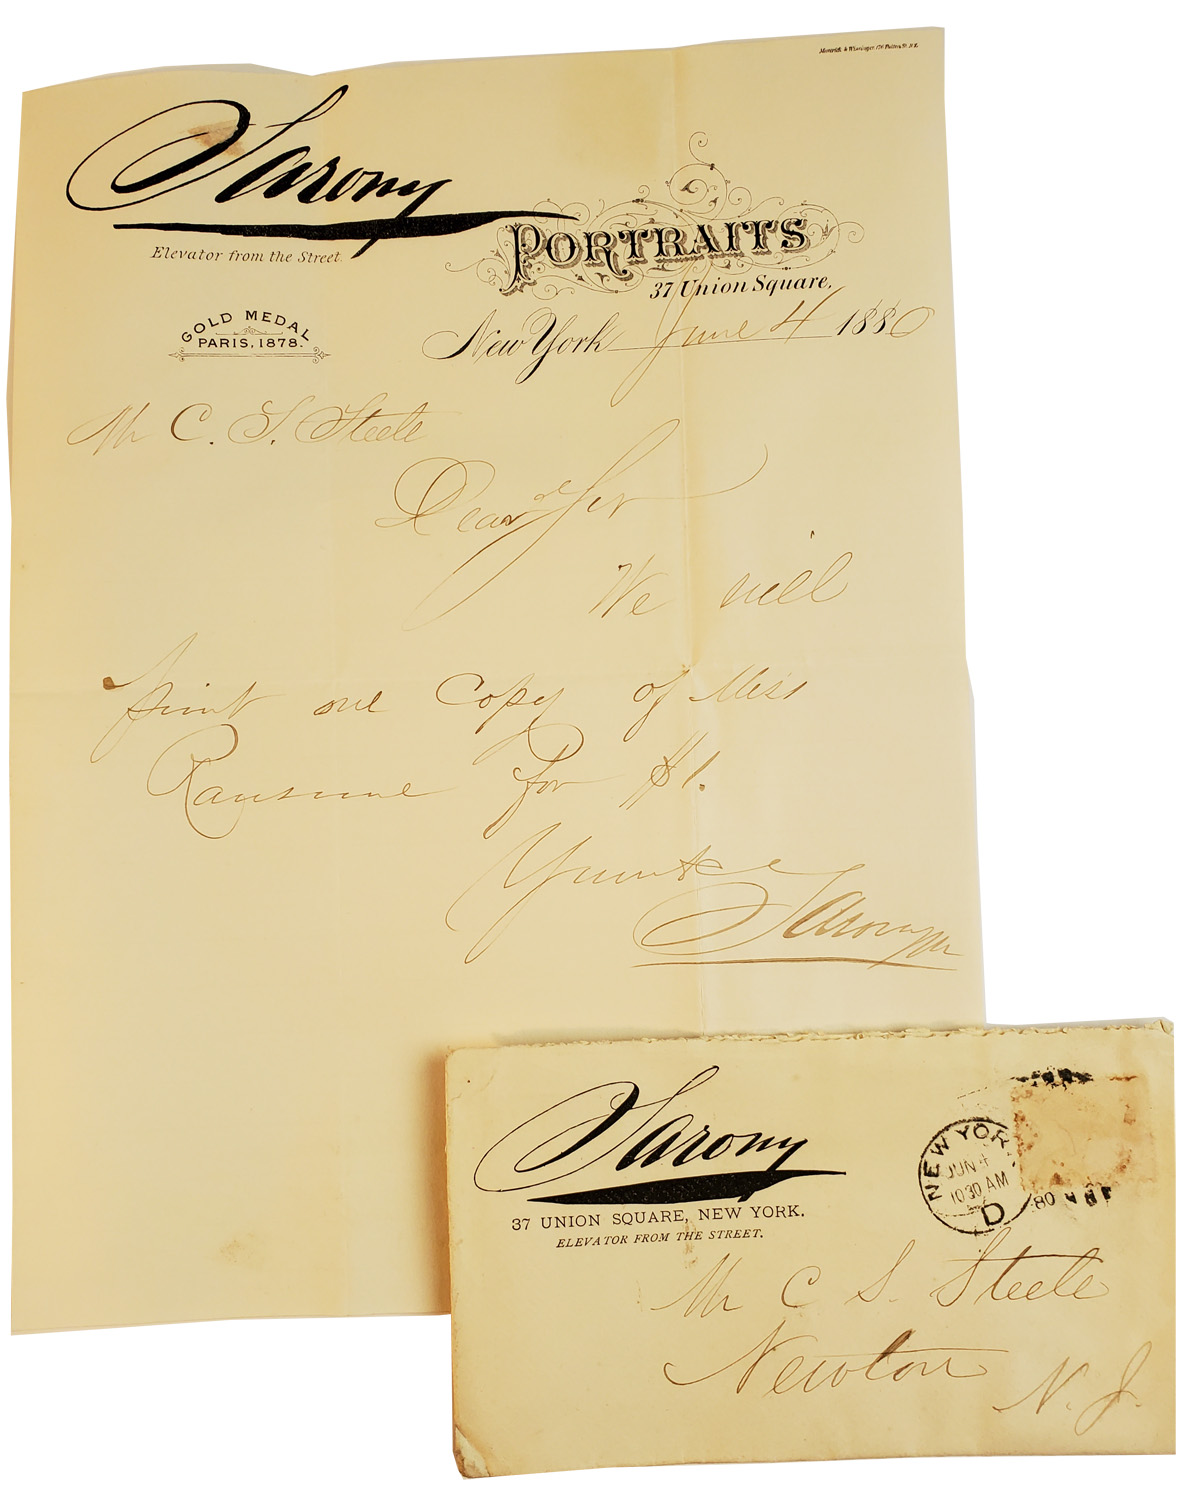 Maverick & Wissinger, 176 Fulton St. N.Y.
Sarony
PORTRAITS
Elevator from the Street.
37 Union Square,
GOLD MEDAL
PARIS, 1878.
New York June 4 1880
Mr C. S. Steele
Dear Sir
We will
print one copy of Miss
Ransome for $1.
Yours &c
Sarony
Sarony
37 UNION SQUARE, NEW YORK.
ELEVATOR FROM THE STREET.
NEW YORK
JUN 4
1030 AM
D
80
Mr C S. Steele
Newton
N. J.